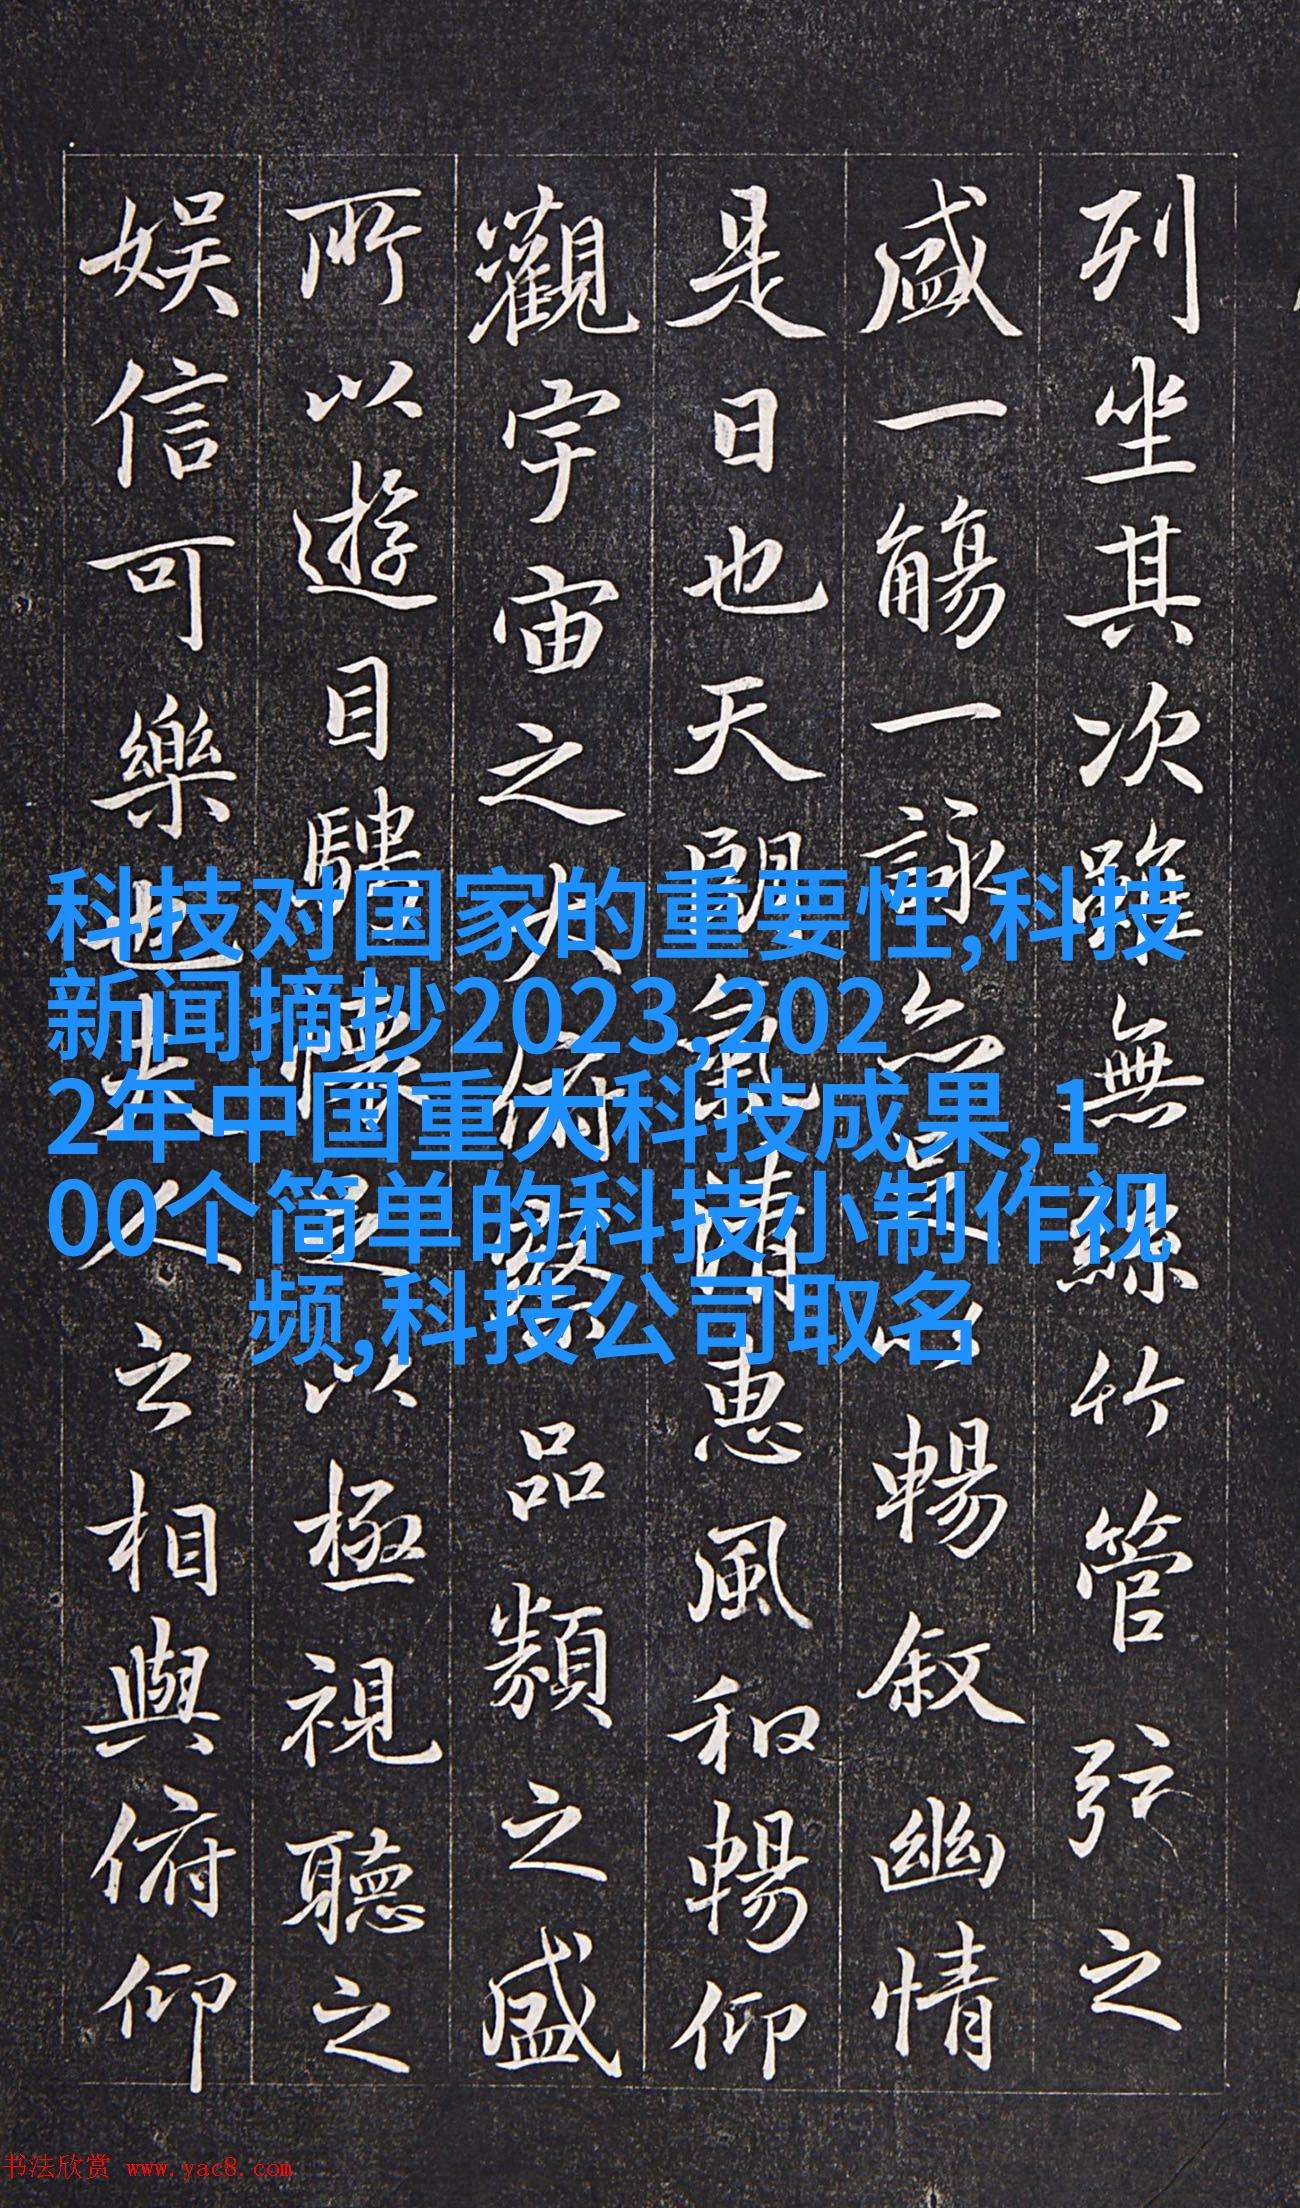 列坐其次雖無絲竹管弦之
盛一觴一詠亦足以暢敘幽情
是日也天朗氣清惠風和暢仰
觀宇宙之大俯察品類之盛
所以遊目騁懷足以極視聽之
娛信可樂也夫人之相與俯仰
科技对国家的重要性,科技
新闻摘抄2023,202
2年中国重大科技成果,1
00个简单的科技小制作视
频,科技公司取名
书法欣赏 www.yac8.com